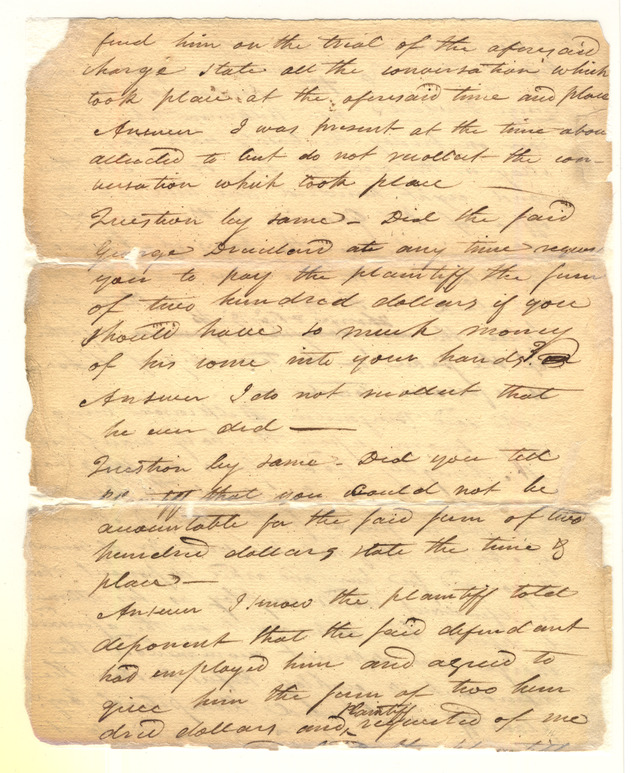 fend him on the trial of the aforesaid
charge state all the conversation which
took place at the aforesaid time and place
Answer I was present at the time above
alluded to but do not recollect the con-
versation which took place —
Question by same – Did the said
George Druillard at any time request
you to pay the plaintiff the sum
of two hundred dollars if you
should have so much money
of his come into your hands?
Answer I do not recollect that
he ever did —
Question by same – Did you tell
that you would not be
accountable for the said sum of two
hundred dollars state the time &
place –
Answer I know the plaintiff told
deponent that the said defendant
had employed him and agreed to
give him the sum of two hun
dred dollars and plaintiff requested of me